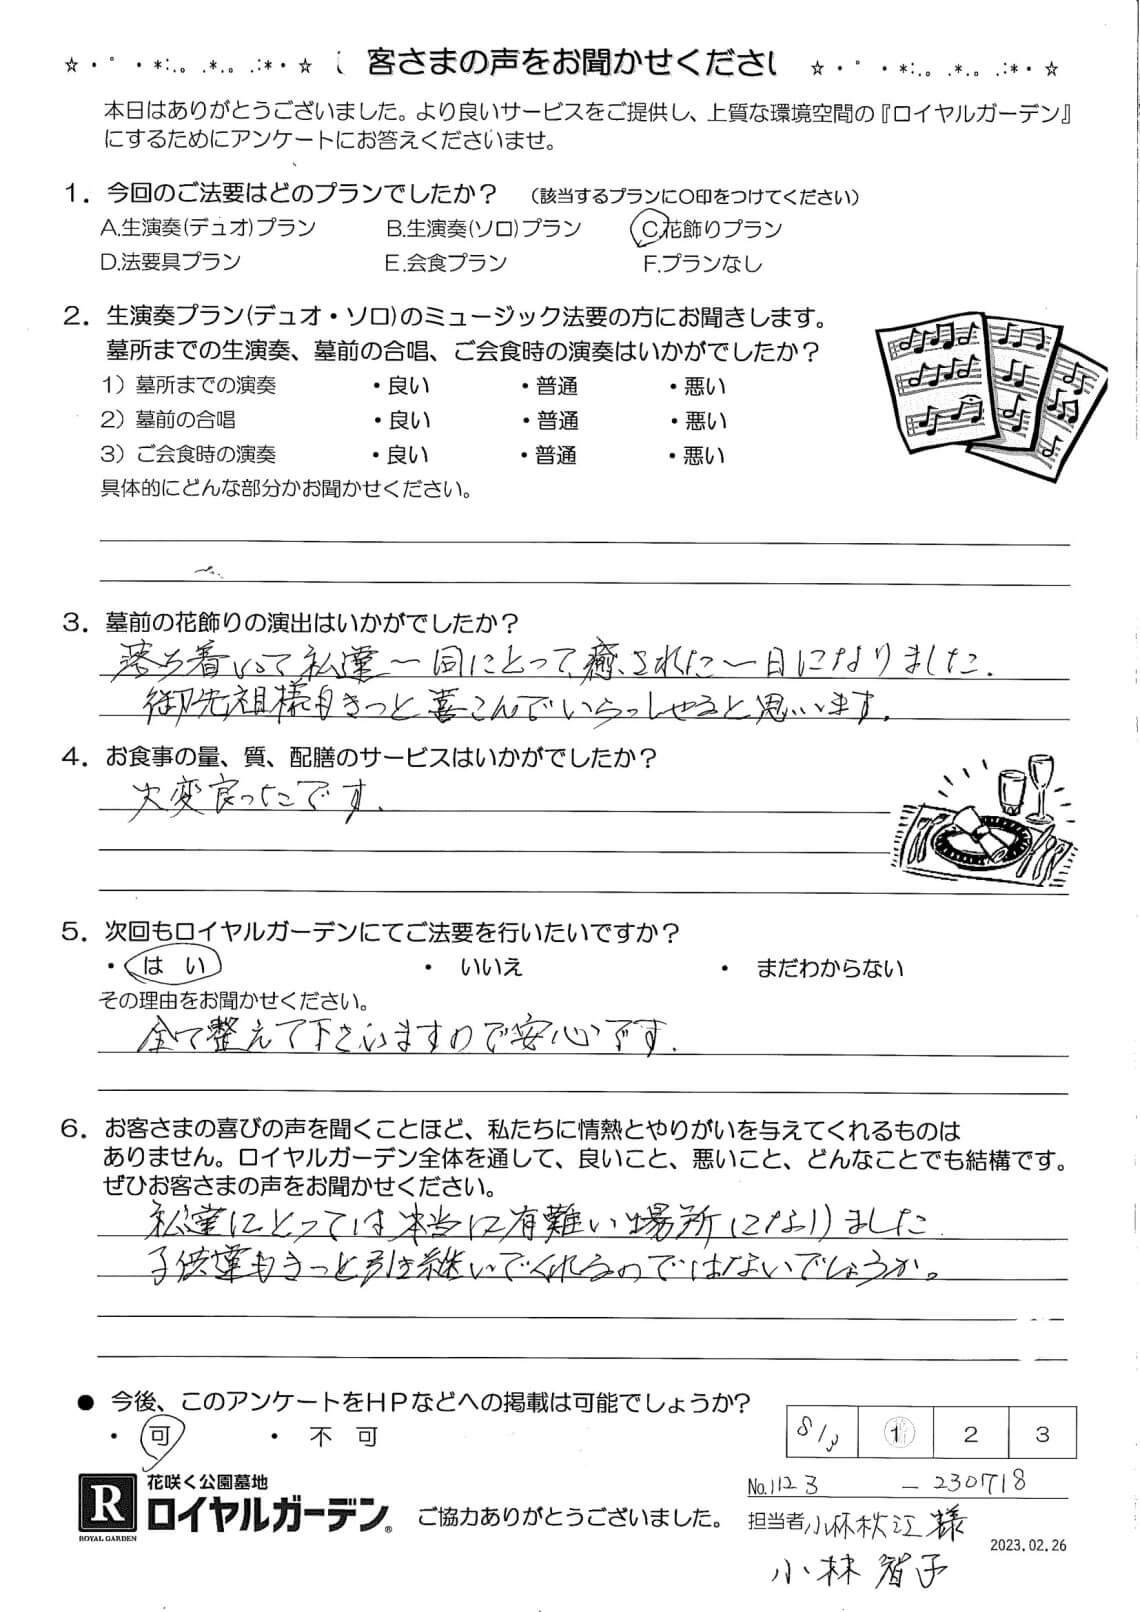 ☆・゜・*:.。.*.。.:*・☆ 客さまの声をお聞かせくださ ☆・゜・*:.。.*.。.:*・☆
本日はありがとうございました。より良いサービスをご提供し、上質な環境空間の『ロイヤルガーデン』
にするためにアンケートにお答えくださいませ。
1．今回のご法要はどのプランでしたか？ （該当するプランに○印をつけてください）
A.生演奏(デュオ)プラン B.生演奏(ソロ)プラン C.花飾りプラン
D.法要具プラン E.会食プラン F.プランなし
2．生演奏プラン(デュオ・ソロ)のミュージック法要の方にお聞きします。
墓所までの生演奏、墓前の合唱、ご会食時の演奏はいかがでしたか？
1）墓所までの演奏 ・良い ・普通 ・悪い
2）墓前の合唱 ・良い ・普通 ・悪い
3）ご会食時の演奏 ・良い ・普通 ・悪い
具体的にどんな部分かお聞かせください。
3．墓前の花飾りの演出はいかがでしたか？
落ち着いて私達一同にとって、癒された一日になりました.
御先祖様もきっと喜こんでいらっしゃると思います.
4．お食事の量、質、配膳のサービスはいかがでしたか？
大変良ったです.
5．次回もロイヤルガーデンにてご法要を行いたいですか？
・ はい ・ いいえ ・ まだわからない
その理由をお聞かせください。
全て整えて下さいますので安心です.
6．お客さまの喜びの声を聞くことほど、私たちに情熱とやりがいを与えてくれるものは
ありません。ロイヤルガーデン全体を通して、良いこと、悪いこと、どんなことでも結構です。
ぜひお客さまの声をお聞かせください。
私達にとっては本当に有難い場所になりました
子供達もきっと引き継いでくれるのではないでしょうか。
● 今後、このアンケートをＨＰなどへの掲載は可能でしょうか?
・ 可 ・ 不 可
1 2 3
No.1123 － 230718
花咲く公園墓地
R ロイヤルガーデン® ご協力ありがとうございました。 担当者 小林秋江 様
ROYAL GARDEN
2023.02.26
小林 智子